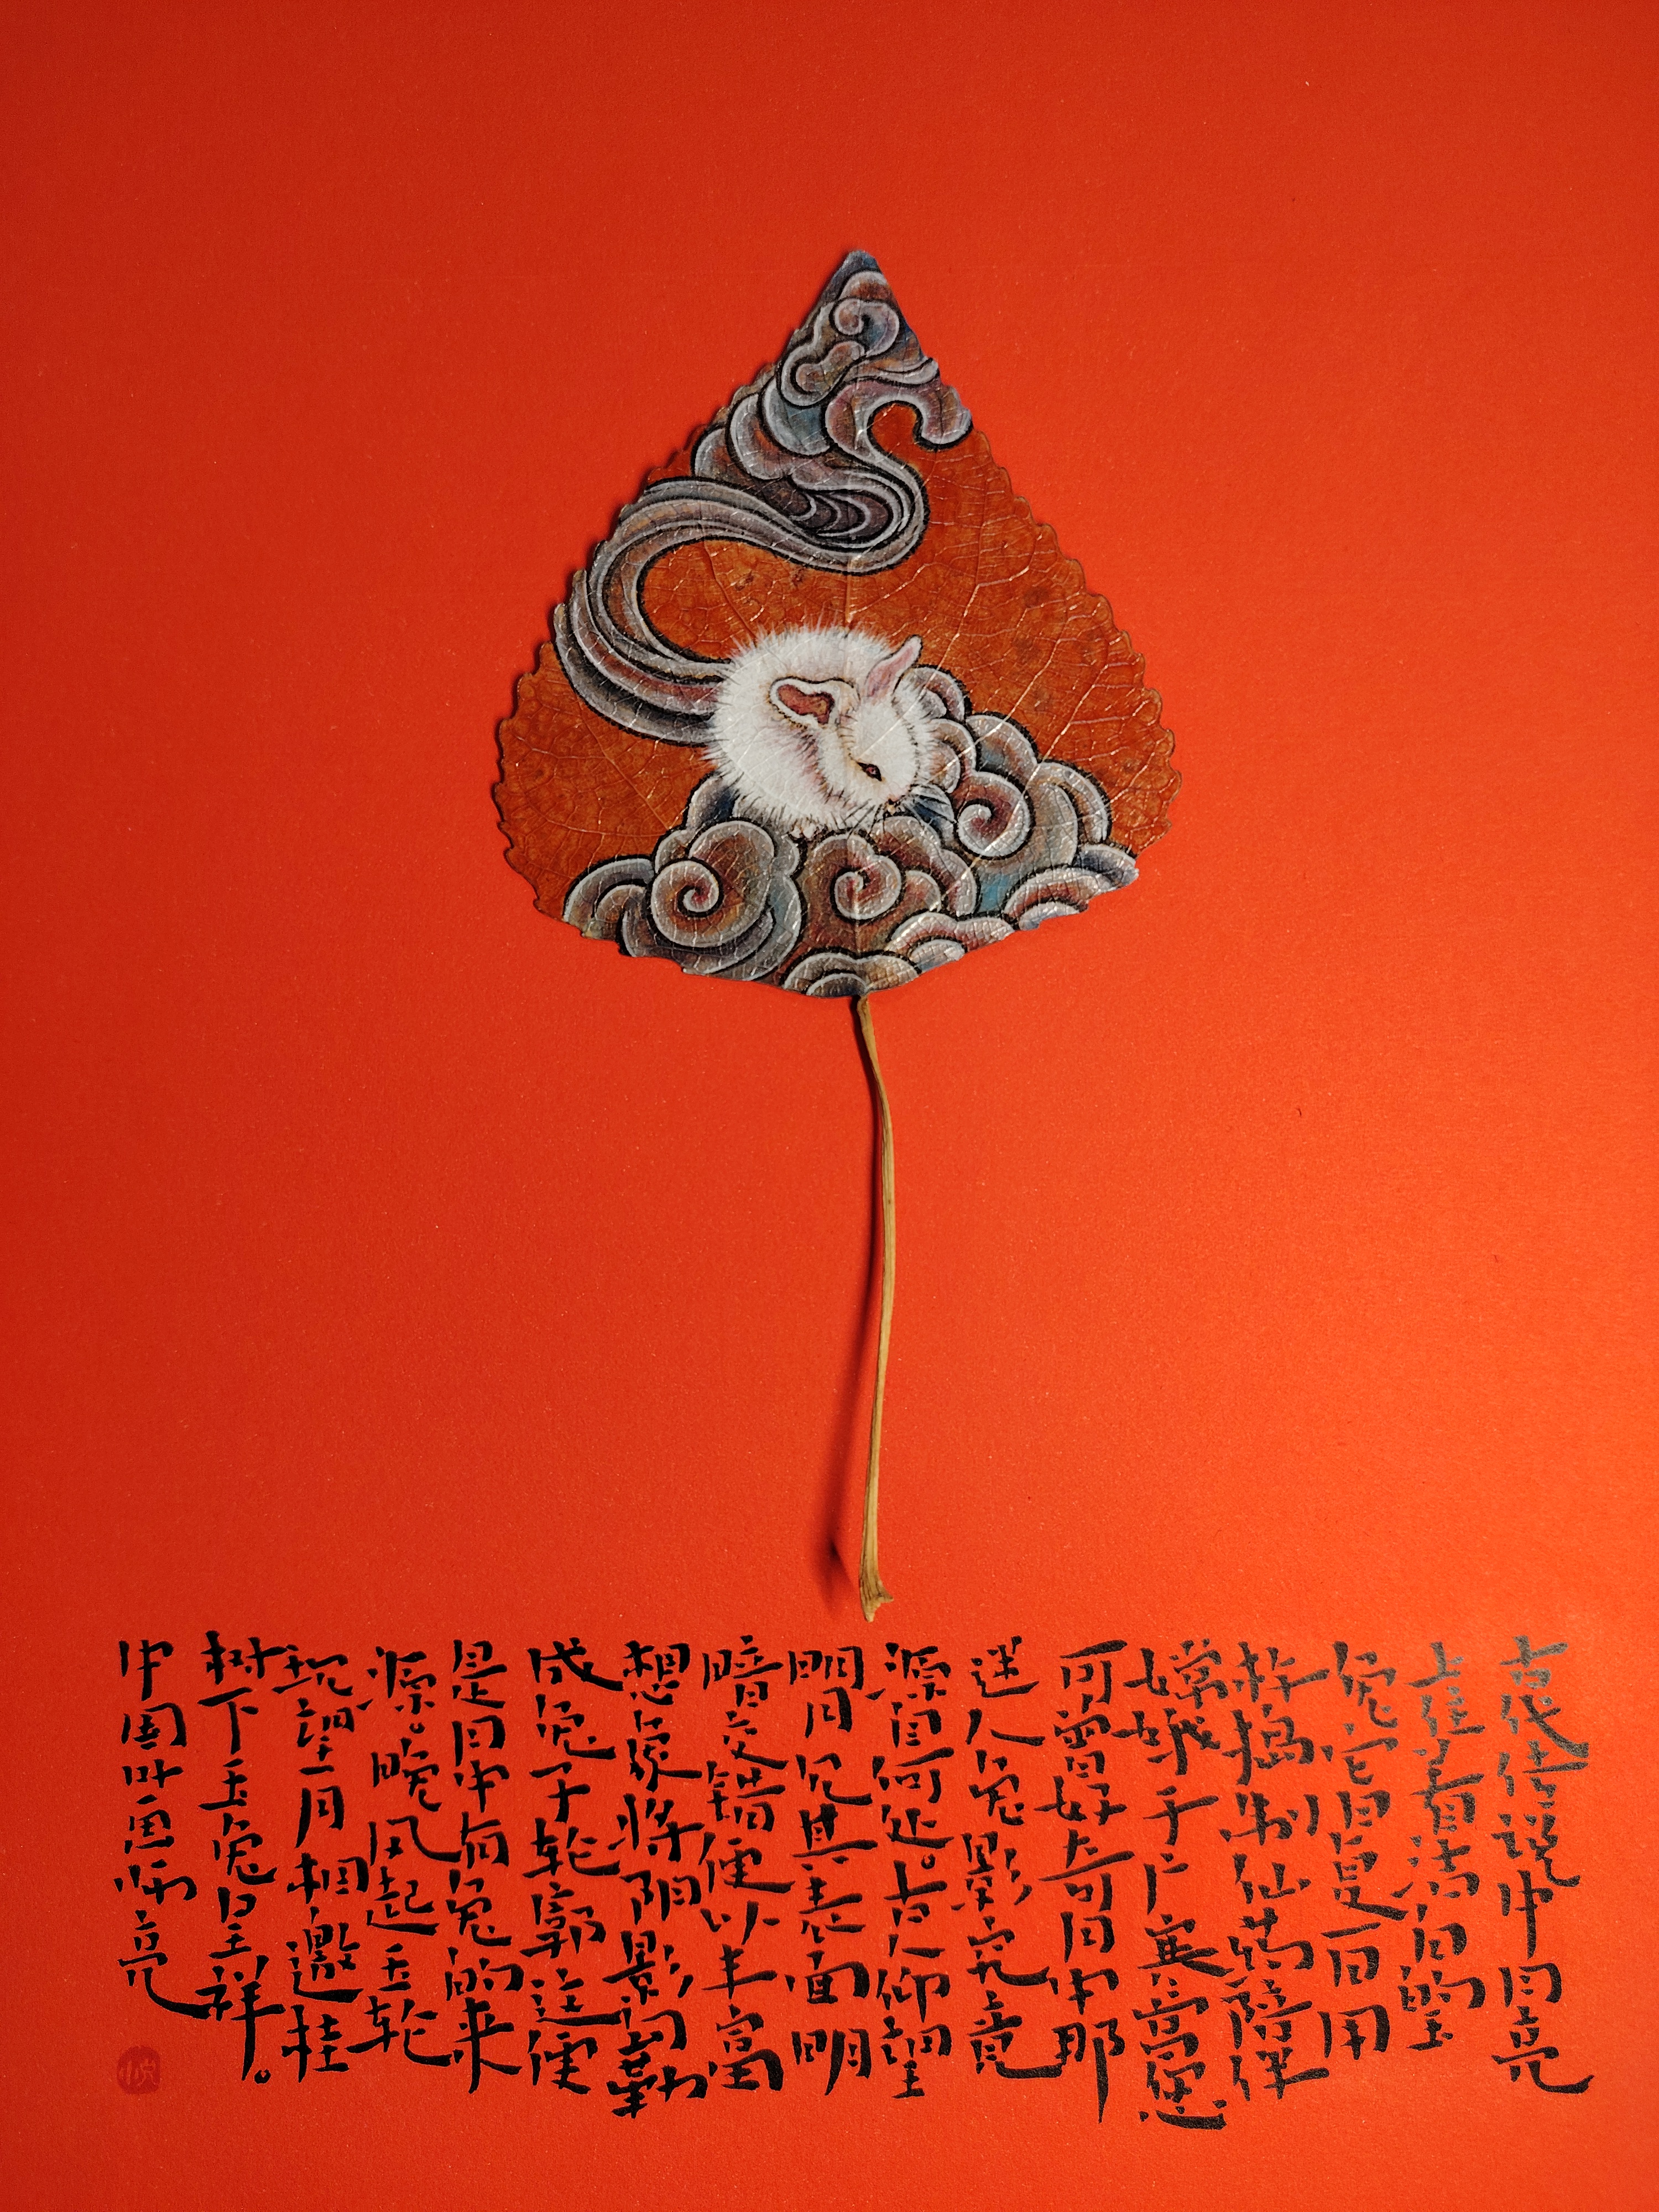 古代传说中月亮
上住着洁白的玉
兔它日复一日用
杵捣制仙药陪伴
嫦娥于广寒宫您
可曾好奇月中那
迷人兔影究竟
源自何处。古人仰望
明月见其表面明
暗交错便以丰富
想象将阴影勾勒
成兔子轮廓这便
是月中有兔的来
源。晚风起玉轮
现望月相邀桂
树下玉兔呈祥。
中国叶画 亮
悦